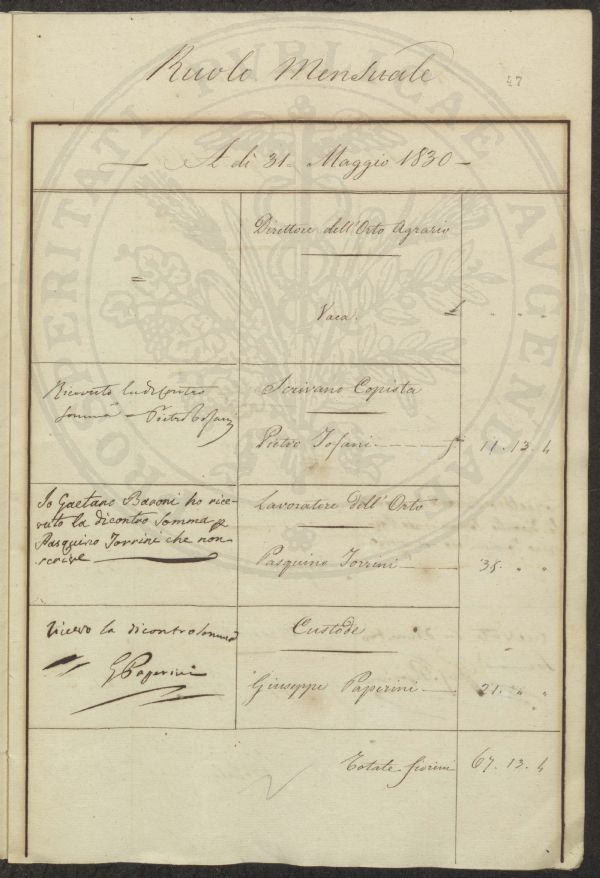 Ruolo Mensuale
47
A dì 31 Maggio 1830
Direttore dell'Orto Agrario
=
Vaca. £ " " "
Ricevuto la di contro
somma Pietro Tofani
Scrivano Copista
Pietro Tofani £ 11.13.4
Io Gaetano Baroni ho rice-
vuto la dicontro somma p
Pasquino Torrini che non
scrive
Lavoratore dell'Orto
Pasquino Torrini 35. " "
ricevo la dicontro somma
G Paperini
Custode
Giuseppe Paperini 21. " "
Totale fiorini 67.13.4
PROSPERITATI PUBLICAE AUGENDAE